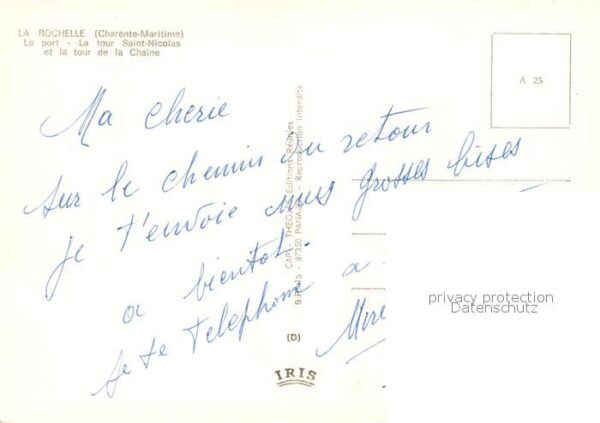 LA ROCHELLE (Charente-Maritime)
Le port - La tour Saint-Nicolas
et la tour de la Chaîne
A 25
Ma cherie
Sur le chemin du retour
je t'envoie mes grosses bises
a bientot.
je te telephone a
CAP - THEOJAC Editions
B.P. 87350 PANAZOL - Reproduction interdite
(D)
IRIS
privacy protection
Datenschutz